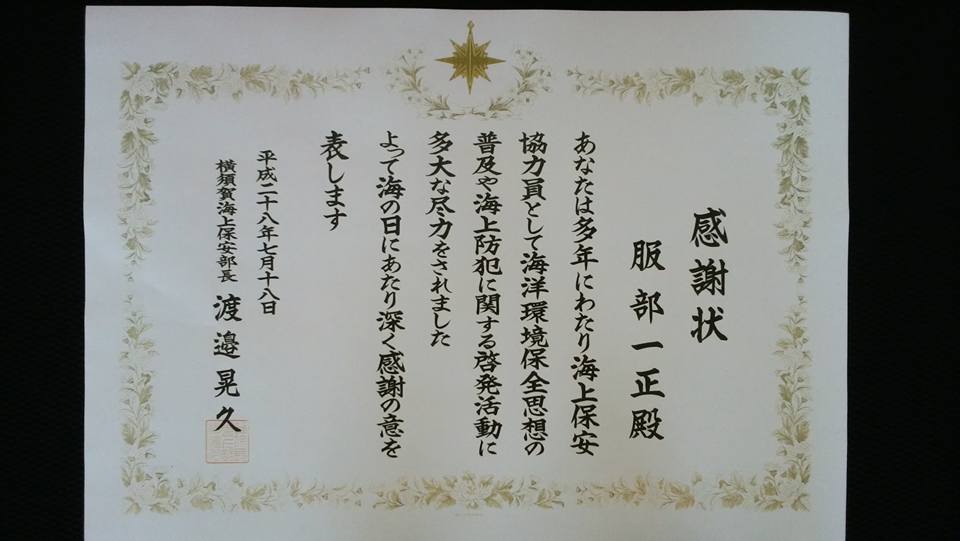 感謝状
服部一正殿
あなたは多年にわたり海上保安
協力員として海洋環境保全思想の
普及や海上防犯に関する啓発活動に
多大な尽力をされました
よって海の日にあたり深く感謝の意を
表します
平成二十八年七月十八日
横須賀海上保安部長 渡邉晃久